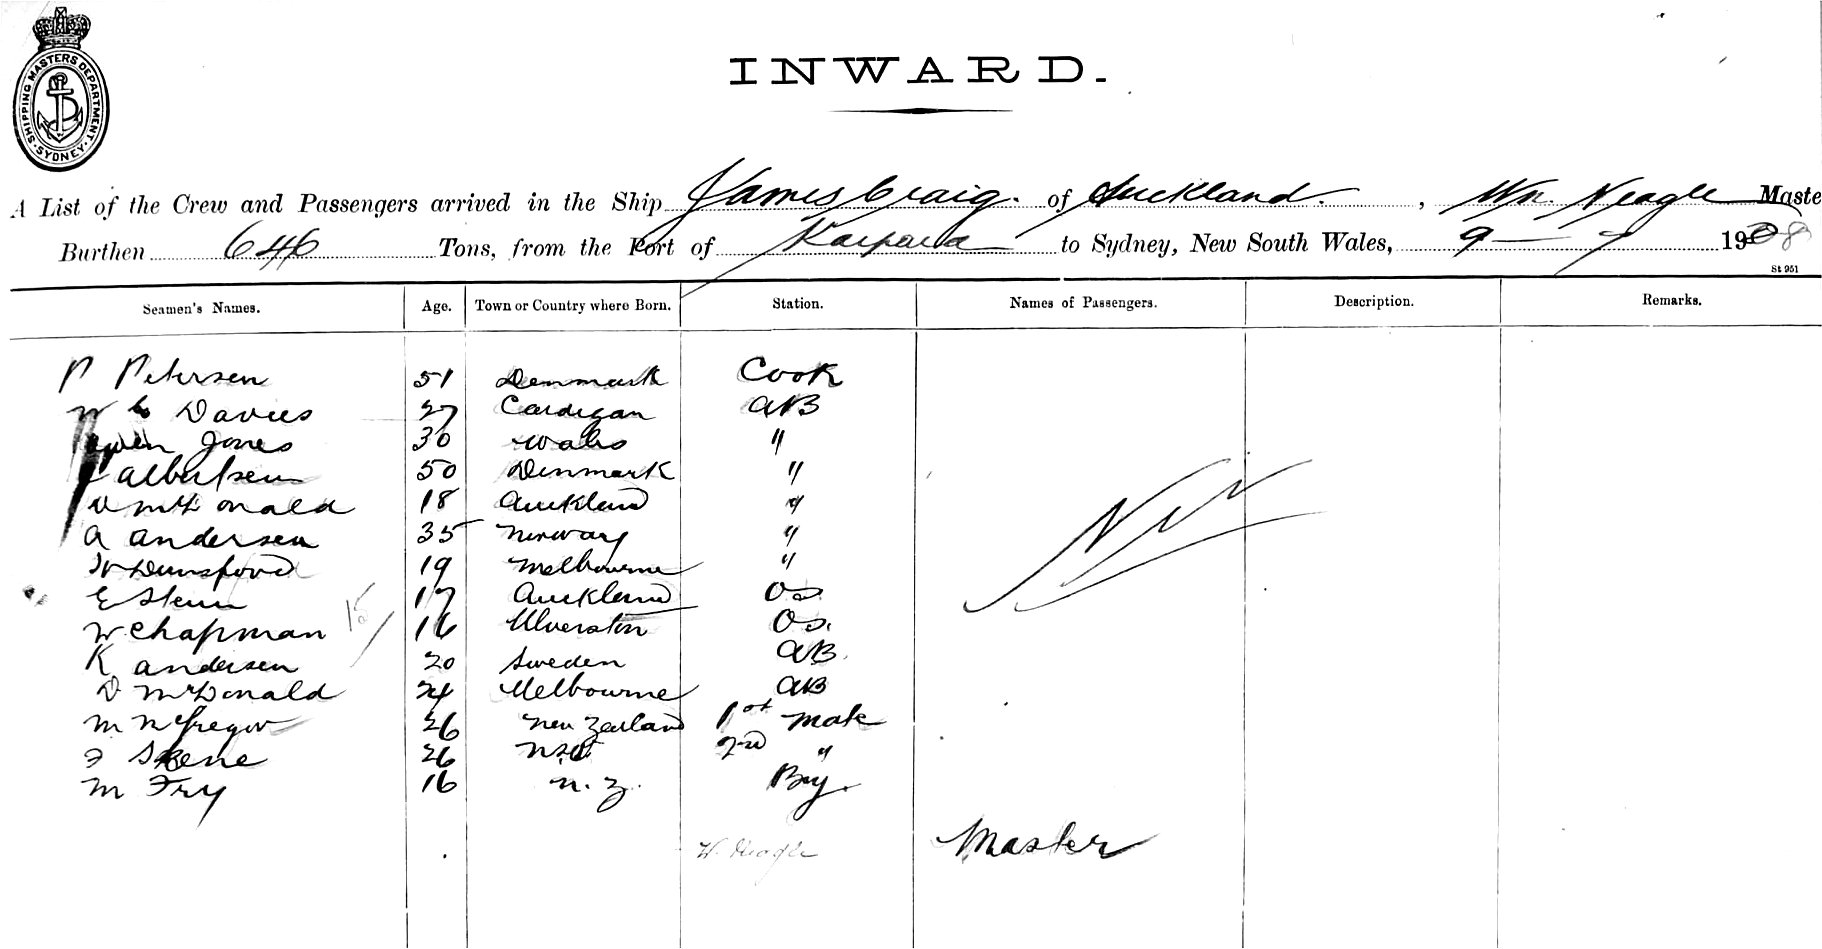 SHIPPING MASTERS DEPARTMENT. SYDNEY.
INWARD.
A List of the Crew and Passengers arrived in the Ship James Craig. of Auckland. , Wm. Neagle Maste
Burthen 646 Tons, from the Port of Kaipara to Sydney, New South Wales, 9 - 7 1908
St 951
Seamen's Names. Age. Town or Country where Born. Station. Names of Passengers. Description. Remarks.
P Petersen 51 Denmark Cook
W Davies 27 Cardigan AB
Owen Jones 30 Wales "
Albertsen 50 Denmark "
McDonald 18 Auckland "
A Andersen 35 Norway "
Dunsford 19 Melbourne "
E Stenn 17 Auckland OS.
W Chapman 15 16 Ulverston OS.
K Andersen 20 Sweden AB.
D McDonald 24 Melbourne AB
M McGregor 26 New Zealand 1st Mate
F Skene 26 NSW 2nd "
M Fry 16 N. Z. Boy.
Nil
W. Neagle Master